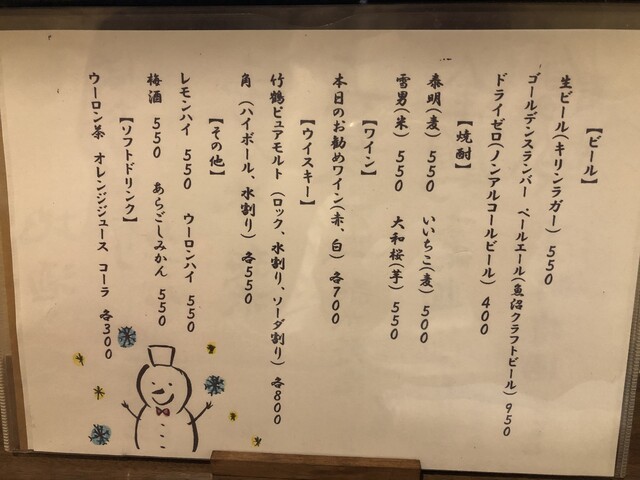 【ビール】
生ビール(キリンラガー) 550
ゴールデンスランバー ペールエール(魚沼クラフトビール) 950
ドライゼロ(ノンアルコールビール) 400
【焼酎】
泰明(麦) 550 いいちこ(麦) 500
雪男(米) 550 大和桜(芋) 550
【ワイン】
本日のお勧めワイン(赤、白) 各700
【ウイスキー】
竹鶴ピュアモルト (ロック、水割り、ソーダ割り) 各800
角 (ハイボール、水割り) 各550
【その他】
レモンハイ 550 ウーロンハイ 550
梅酒 550 あらごしみかん 550
【ソフトドリンク】
ウーロン茶 オレンジジュース コーラ 各300